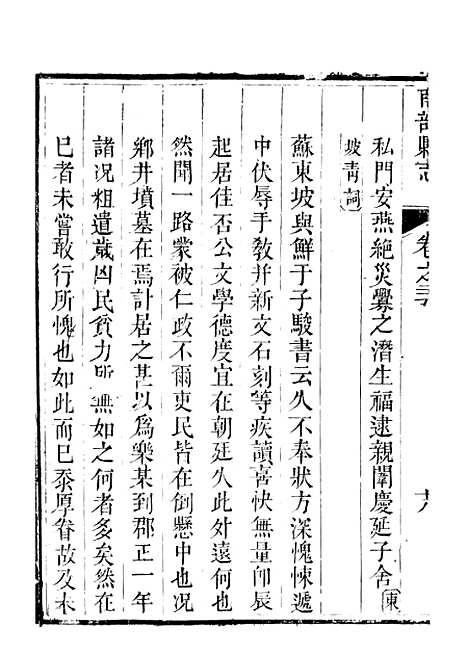 南部縣志
卷之三
六
私門安燕絶災釁之潛生福逮親闈慶延子舍東
坡青詞
蘇東坡與鮮于子駿書云久不奉狀方深愧悚遞
中伏辱手敎并新文石刻等疾讀喜快無量卽辰
起居佳否公文學德度宜在朝廷久此外遠何也
然聞一路蒙被仁政不爾吏民皆在倒懸中也况
鄉井墳墓在焉計居之甚以爲樂某到郡正一年
諸况粗遣歲凶民貧力所無如之何者多矣然在
巳者未嘗敢行所愧也如此而巳忝厚眷故及未